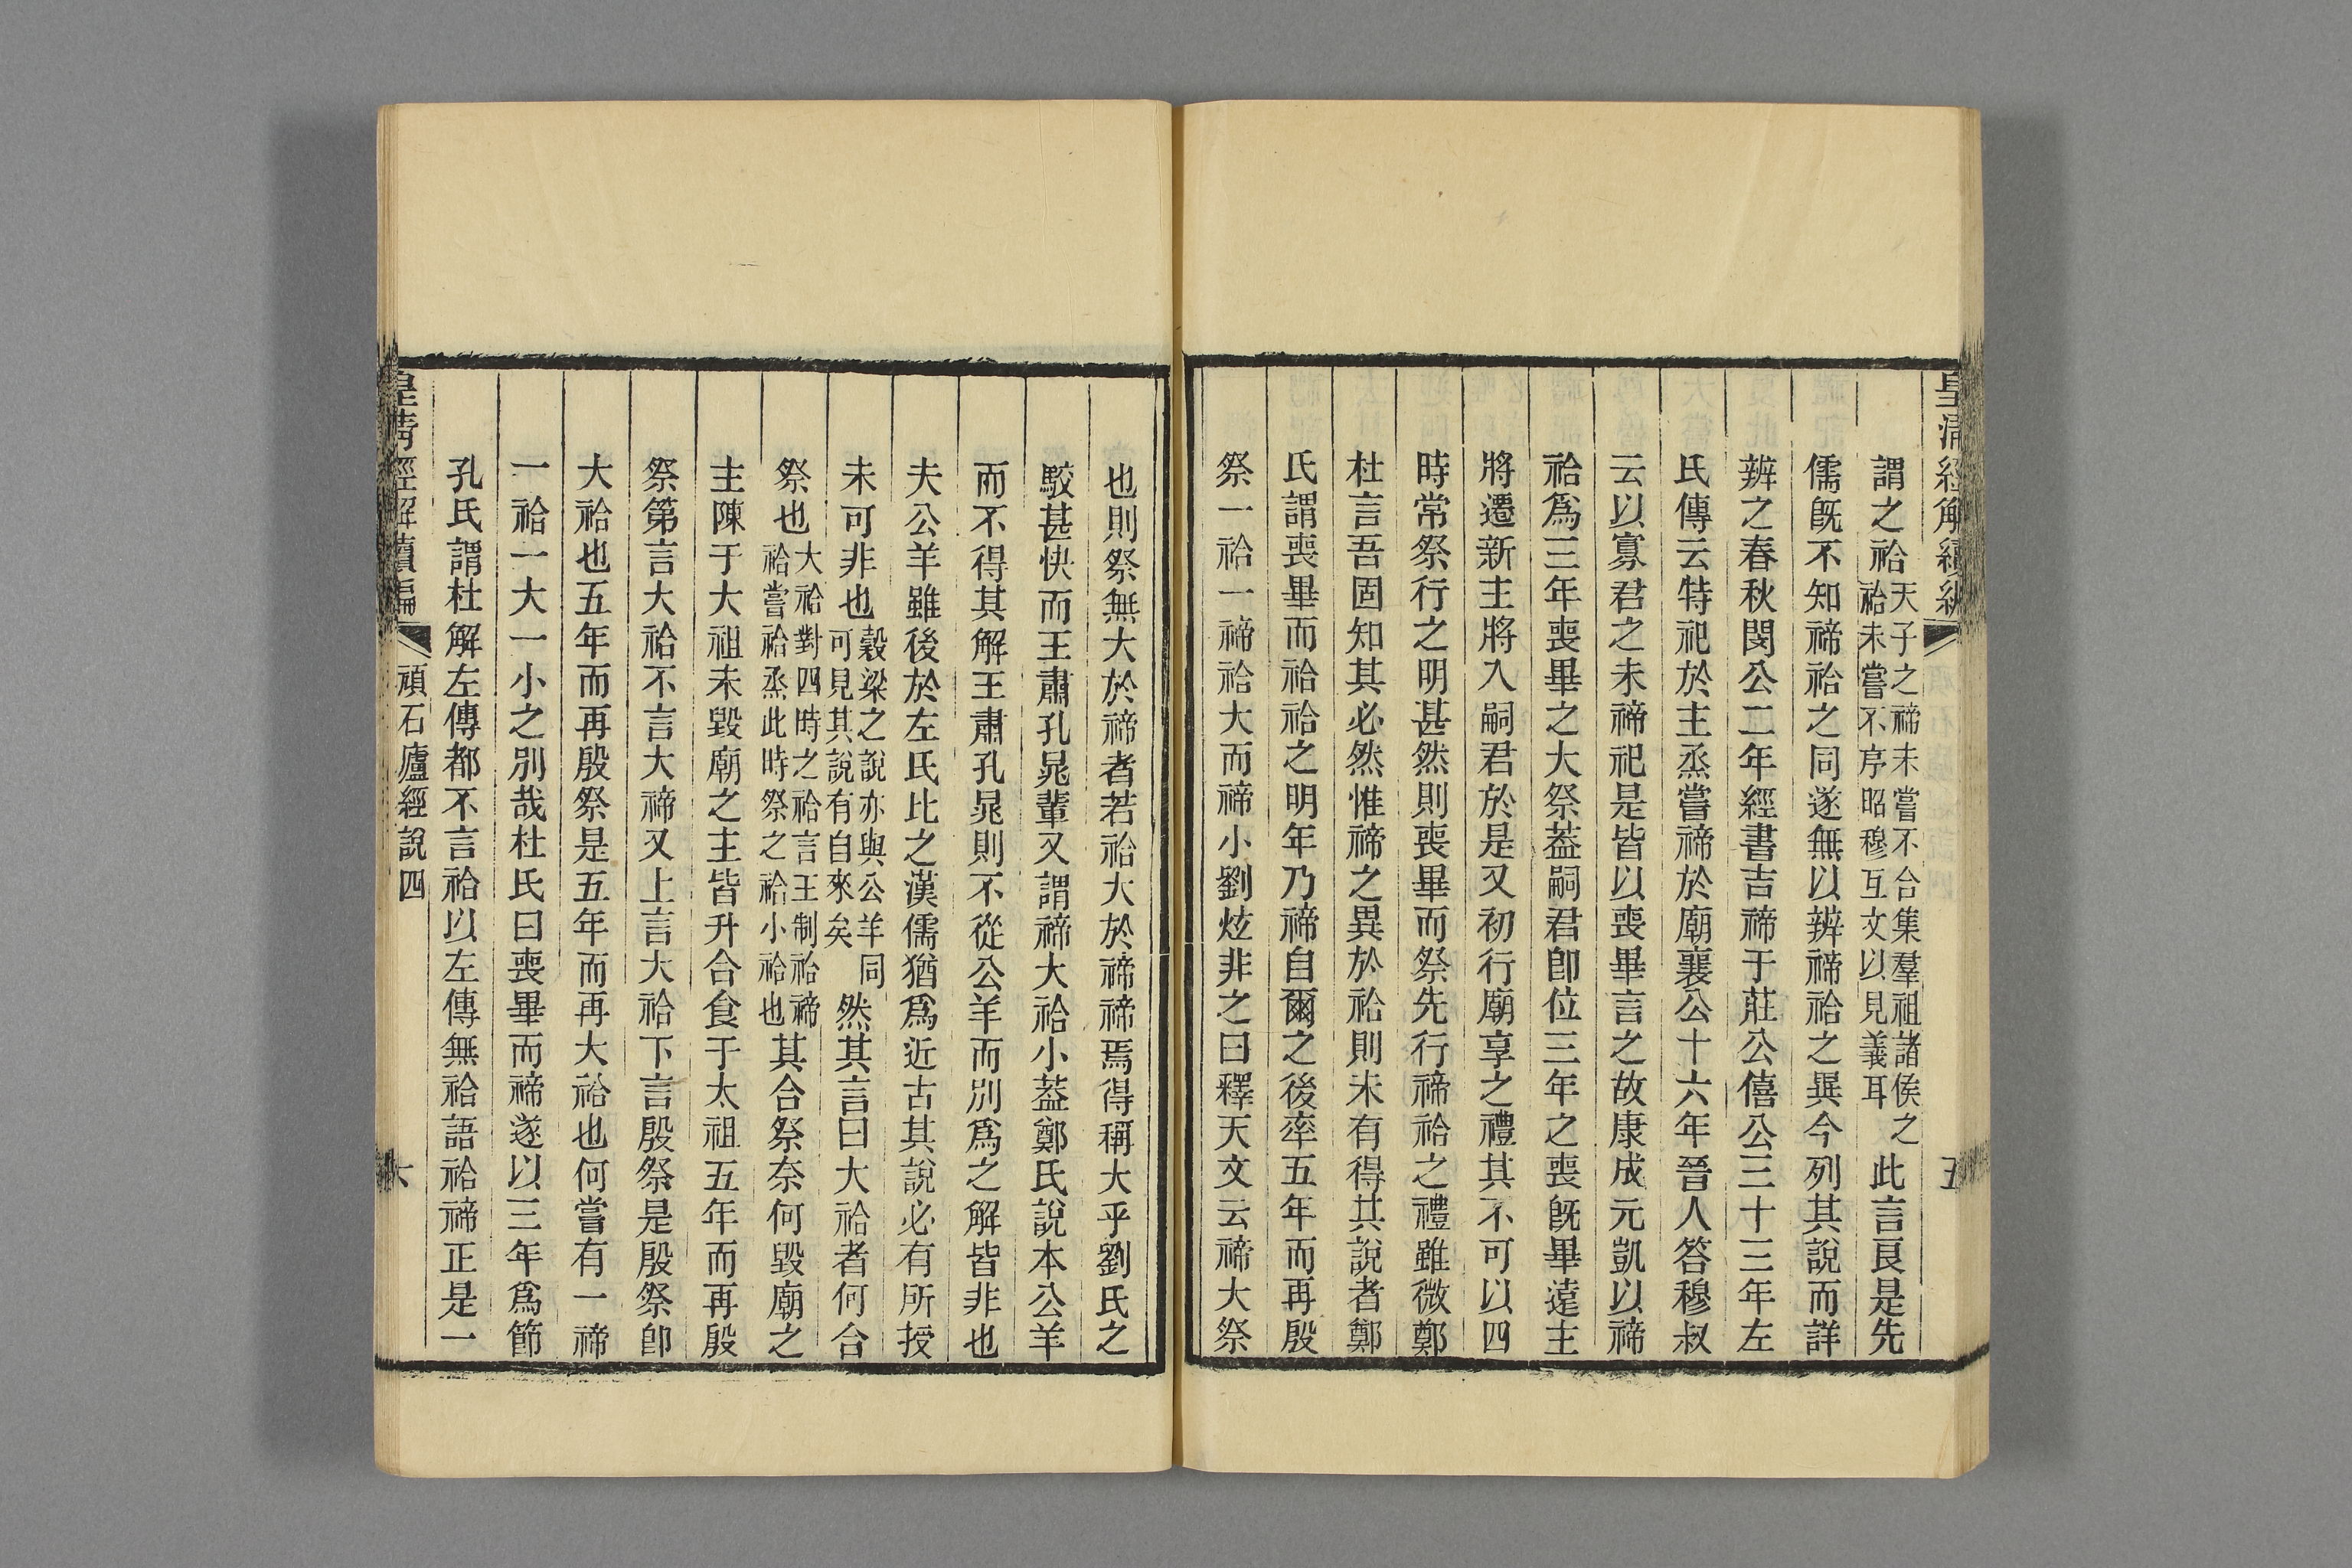 皇清經解續編
五
謂之祫天子之禘未嘗不合集羣祖諸侯之祫未嘗不序昭穆互文以見義耳此言良是先
儒旣不知禘祫之同遂無以辨禘祫之異今列其說而詳
辨之春秋閔公二年經書吉禘于莊公僖公三十三年左
氏傳云特祀於主烝嘗禘於廟襄公十六年晉人答穆叔
云以寡君之未禘祀是皆以喪畢言之故康成元凱以禘
祫爲三年喪畢之大祭葢嗣君卽位三年之喪旣畢遠主
將遷新主將入嗣君於是又初行廟享之禮其不可以四
時常祭行之明甚然則喪畢而祭先行禘祫之禮雖微鄭
杜言吾固知其必然惟禘之異於祫則未有得其說者鄭
氏謂喪畢而祫祫之明年乃禘自爾之後率五年而再殷
祭一祫一禘祫大而禘小劉炫非之曰釋天文云禘大祭
也則祭無大於禘者若祫大於禘禘焉得稱大乎劉氏之
駮甚快而王肅孔晁輩又謂禘大祫小葢鄭氏說本公羊
而不得其解王肅孔晁則不從公羊而別爲之解皆非也
夫公羊雖後於左氏比之漢儒猶爲近古其說必有所授
未可非也穀梁之說亦與公羊同可見其說有自來矣然其言曰大祫者何合
祭也大祫對四時之祫言王制祫禘祫嘗祫烝此時祭之祫小祫也其合祭奈何毀廟之
主陳于大祖未毀廟之主皆升合食于太祖五年而再殷
祭第言大祫不言大禘又上言大祫下言殷祭是殷祭卽
大祫也五年而再殷祭是五年而再大祫也何嘗有一禘
一祫一大一小之別哉杜氏曰喪畢而禘遂以三年爲節
孔氏謂杜解左傳都不言祫以左傳無祫語祫禘正是一
皇清經解續編
頑石廬經說四
六